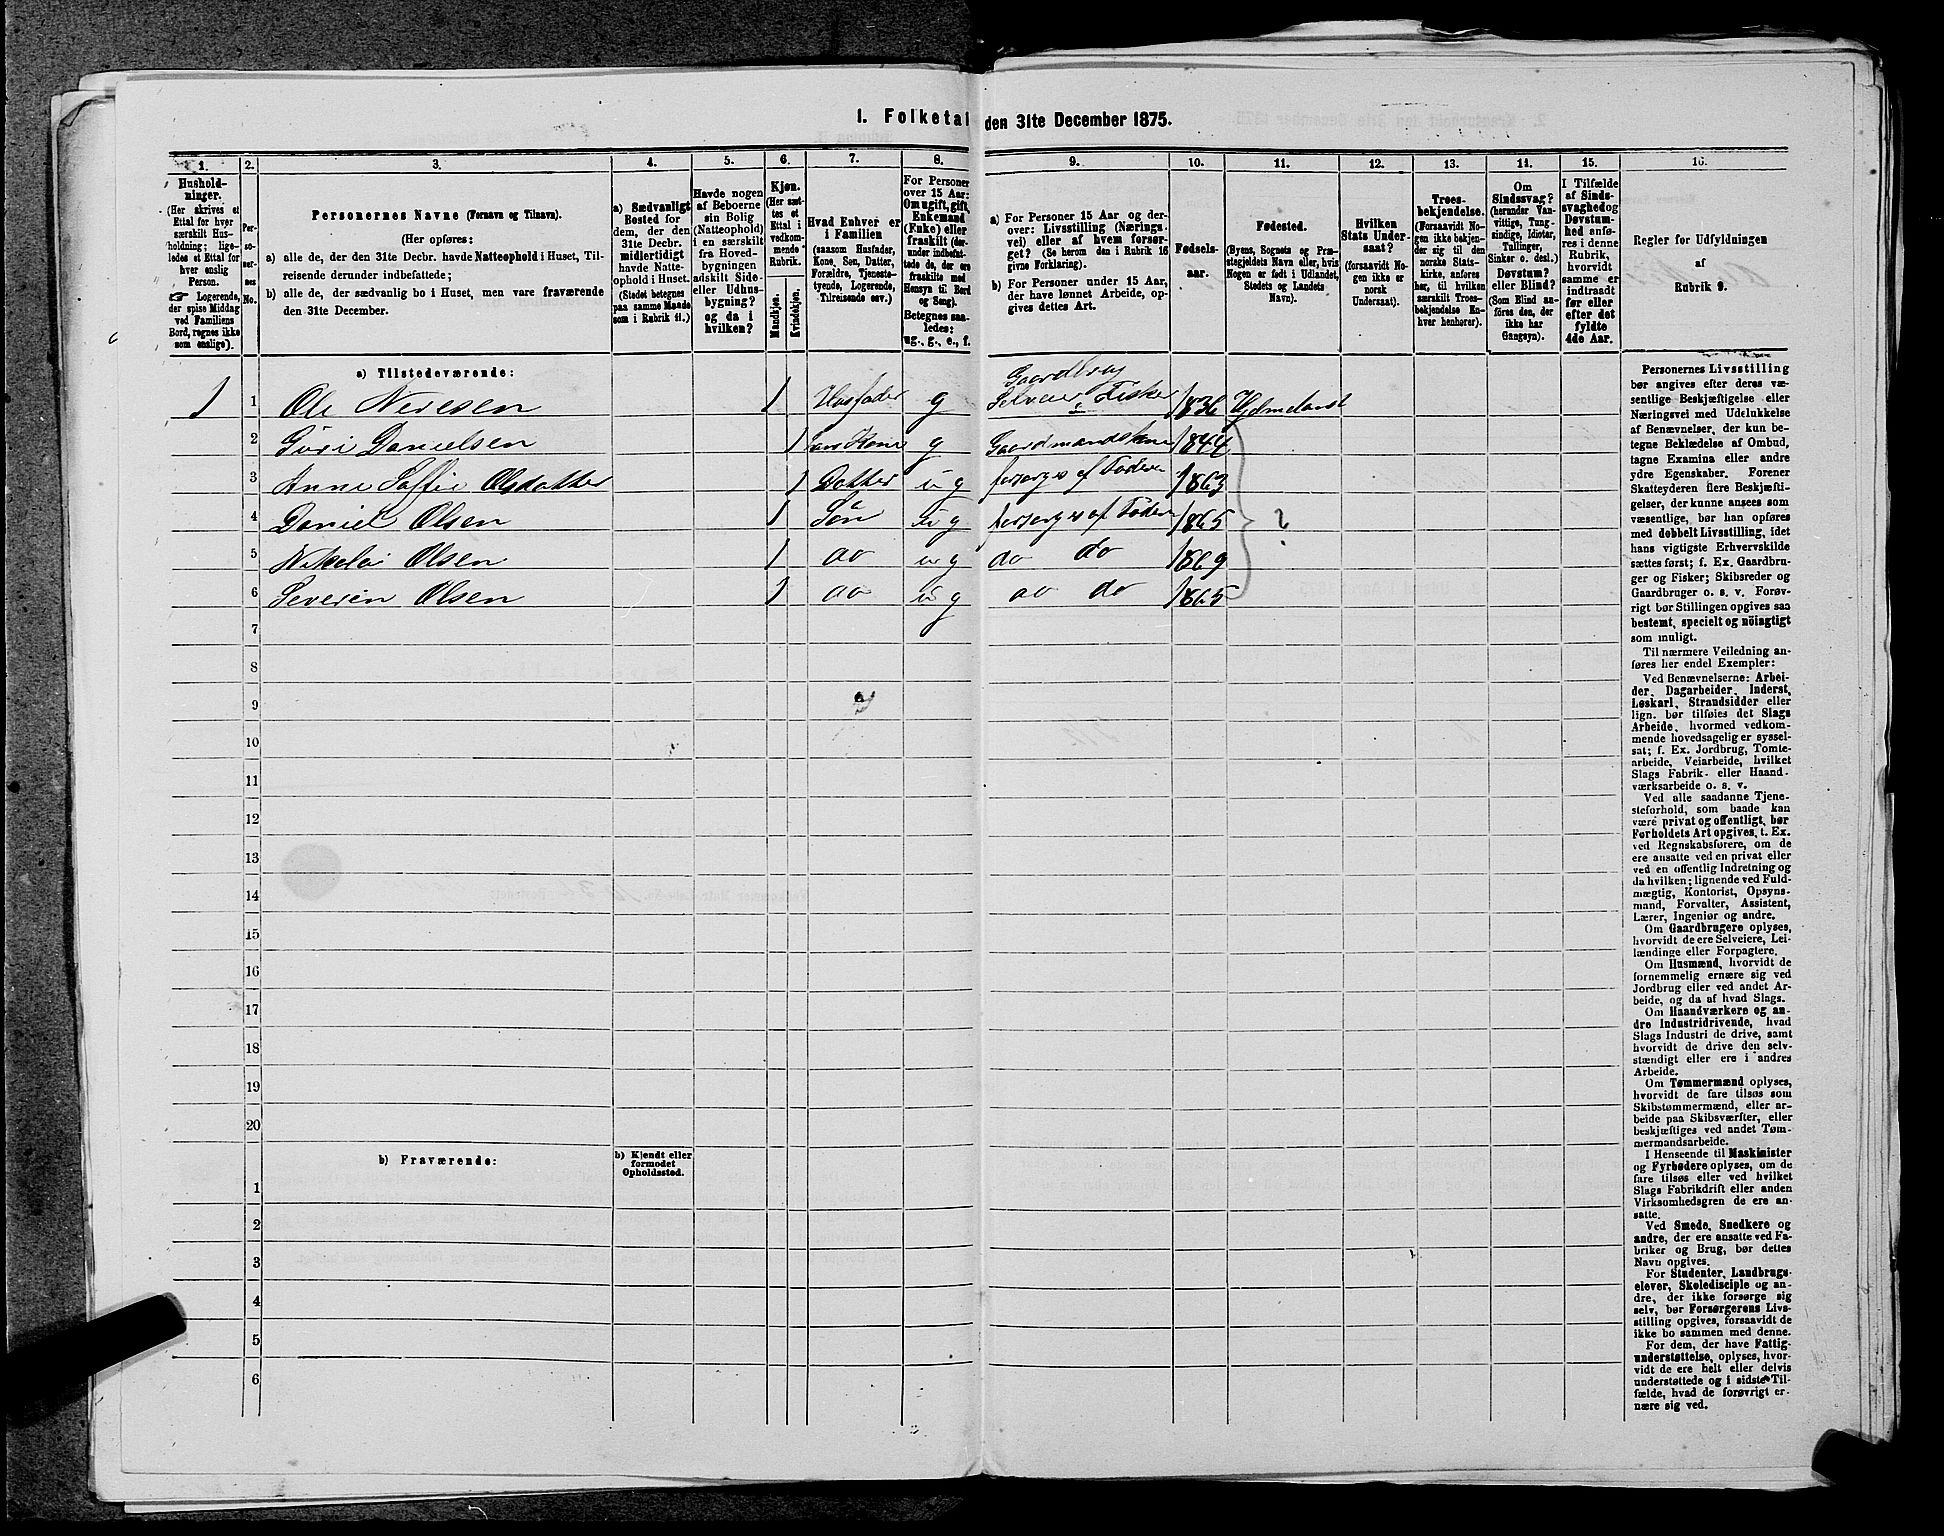 I. Folketal den 31te December 1875.
1. 2. 3. 4. 5. 6. 7. 8. 9. 10. 11. 12. 13. 14. 15. 16.
Hushold-
ninger.
(Her skrives et
Ettal for hver
særskilt Hus-
holdning; lige-
ledes et Ettal for
hver enslig
Person.
☞ Logerende,
der spise Middag
ved Familiens
Bord, regnes ikke
som enslige).
Per-
so-
ner-
nes
No.
Personernes Navne (Fornavn og Tilnavn).
(Her opføres:
a) alle de, der den 31te Decbr. havde Natteophold i Huset, Til-
reisende derunder indbefattede;
b) alle de, der sædvanlig bo i Huset, men vare fraværende
den 31te December.
a) Sædvanligt
Bosted for
dem, der den
31te Decbr.
midlertidigt
havde Natte-
ophold i Huset.
(Stedet betegnes
paa samme Maade
som i Rubrik 11.)
Havde nogen
af Beboerne
sin Bolig
(Natteophold)
i en særskilt
fra Hoved-
bygningen
adskilt Side-
eller Udhus-
bygning?
og da i
hvilken?
Kjøn.
(Her sæt-
tes et
Ettal i
vedkom-
mende
Rubrik.
Mandkjøn.
Kvindekjøn.
Hvad Enhver er
i Familien
(saasom Husfader,
Kone, Søn, Datter,
Forældre, Tjeneste-
tyende, Logerende,
Tilreisende osv.)
For Personer
over 15 Aar:
Om ugift, gift,
Enkemand
(Enke) eller
fraskilt (der-
under indbefat-
tede de, der ere
fraskilte med
Hensyn til Bord
og Seng).
Betegnes saa-
ledes:
ug., g., e., f.
a) For Personer 15 Aar og der-
over: Livsstilling (Nærings-
vei) eller af hvem forsør-
get? (Se herom den i Rubrik 16
givne Forklaring).
b) For Personer under 15 Aar,
der have lønnet Arbeide, op-
gives dettes Art.
Fødsels-
aar.
Fødested.
(Byens, Sognets og Præ-
stegjeldets Navn eller, hvis
Nogen er født i Udlandet,
Stedets og Landets
Navn).
Hvilken
Stats Under-
saat?
(forsaavidt No-
gen ikke er
norsk
Undersaat).
Troes-
bekjendelse.
(Forsaavidt No-
gen ikke bekjen-
der sig til den
norske Stats-
kirke, anføres
her, til hvilken
særskilt Troes-
bekjendelse En-
hver henhører).
Om
Sindssvag?
(herunder Van-
vittige, Tung-
sindige, Idioter,
Tullinger,
Sinker o. desl.)
Døvstum?
eller Blind?
(Som Blind an-
føres den, der
ikke har
Gangsyn).
I Tilfælde
af Sinds-
svaghed og
Døvstum-
hed anfø-
res i denne
Rubrik,
hvorvidt
samme er
indtraadt
før eller
efter det
fyldte
4de Aar.
Regler for Udfyldningen
af
Rubrik 9.
a) Tilstedeværende:
Gaardbrug
1 1 Ole Neresen 1 Husfader g Selveier & Fisker 1836 Hjelmeland
2 Guri Danielsen 1 Kone g Gaardmandskone 1844
3 Anne Soffie Olsdatter 1 Datter u g forsørges af Faderen 1863
4 Daniel Olsen 1 Søn u g forsørges af Faderen 1865 ?
5 Nikolai Olsen 1 do u g do do 1869
6 Severin Olsen 1 do u g do do 1865
7 g
8
9
10
11
12
13
14
15
16
17
18
19
20
b) Fraværende:
b) Kjendt eller
formodet
Opholdssted.
1
2
3
4
5
6
Personernes Livsstilling
bør angives efter deres væ-
sentlige Beskjæftigelse eller
Næringsvei med Udelukkelse
af Benævnelser, der kun be-
tegne Beklædelse af Ombud,
tagne Examina eller andre
ydre Egenskaber. Forener
Skatteyderen flere Beskjæfti-
gelser, der kunne ansees som
væsentlige, bør han opføres
med dobbelt Livsstilling, idet
hans vigtigste Erhvervskilde
sættes først; f. Ex. Gaardbru-
ger og Fisker; Skibsreder og
Gaardbruger o. s. v. Forøv-
rigt bør Stillingen opgives saa
bestemt, specielt og nöiagtigt
som muligt.
Til nærmere Veiledning an-
føres her endel Exempler:
Ved Benævnelserne: Arbei-
der, Dagarbeider, Inderst,
Løskarl, Strandsidder eller
lign. bør tilføies det Slags
Arbeide, hvormed vedkom-
mende hovedsagelig er syssel-
sat; f. Ex. Jordbrug, Tomte-
arbeide, Veiarbeide, hvilket
Slags Fabrik- eller Haand-
værksarbeide o. s. v.
Ved alle saadanne Tjene-
steforhold, som baade kan
være privat og offentligt, bør
Forholdets Art opgives, t. Ex.
ved Regnskabsførere, om de
ere ansatte ved en privat eller
ved en offentlig Indretning og
da hvilken; lignende ved Fuld-
mægtig, Kontorist, Opsyns-
mand, Forvalter, Assistent,
Lærer, Ingeniør og andre.
Om Gaardbrugere oplyses,
hvorvidt de ere Selveiere, Lei-
lændinge eller Forpagtere.
Om Husmænd, hvorvidt de
fornemmelig ernære sig ved
Jordbrug eller ved andet Ar-
beide, og da af hvad Slags.
Om Haandværkere og an-
dre Industridrivende, hvad
Slags Industri de drive, samt
hvorvidt de drive den selv-
stændigt eller ere i andres
Arbeide.
Om Tømmermænd oplyses,
hvorvidt de fare tilsøs som
Skibstømmermænd, eller ar-
beide paa Skibsværfter, eller
beskjæftiges ved andet Tøm-
mermandsarbeide.
I Henseende til Maskinister
og Fyrbødere oplyses, om de
fare tilsøs eller ved hvilket
Slags Fabrikdrift eller anden
Virksomhedsgren de ere an-
satte.
Ved Smede, Snedkere og
andre, der ere ansatte ved Fa-
briker og Brug, bør dettes
Navn opgives.
For Studenter, Landbrugs-
elever, Skoledisciple og an-
dre, der ikke forsørge sig
selv, bør Forsørgerens Livs-
stilling opgives, forsaavidt de
ikke bo sammen med denne.
For dem, der have Fattig-
understøttelse, oplyses, hvor-
vidt de ere helt eller delvis
understøttede og i sidste Til-
fælde, hvad de forøvrigt er-
nære sig ved.